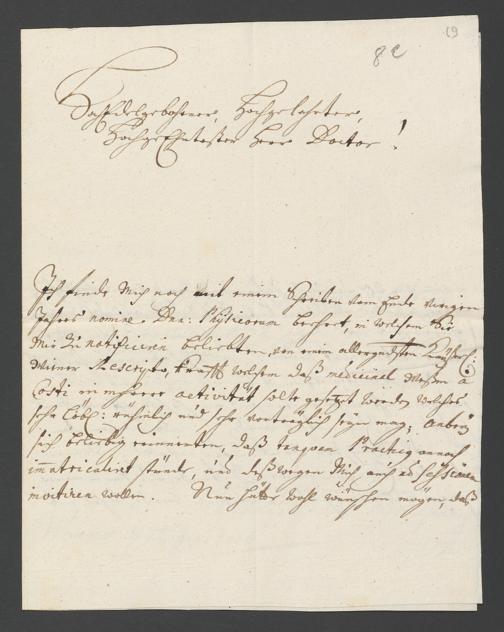 19
8e
HochEdelgebohrner, Hochgelahrter,
HochgeEhrtester Herr Doctor!
Ich finde mich noch mit einem Schreiben vom Ende vorigen
Jahres nomine Dnn: Physicorum beehret, in welchem Sie
mir zu notificiren beliebten, von einem allergndsten Kayserl:
Wiener Rescripto, Krafft welchem daß medicinal Wesen a
Costi in mehrere activität solte gesetzt werden, welches
sehr löbl: rühmlich und sehr vorträglich seyn mag; anbey
sich beliebig erinnerten, daß tanquam Practicg annoch
immatriculirt stünde, und deßwegen mich auch ad sessiones
invitiren wollen. Nun hätte wohl wünschen mögen, daß